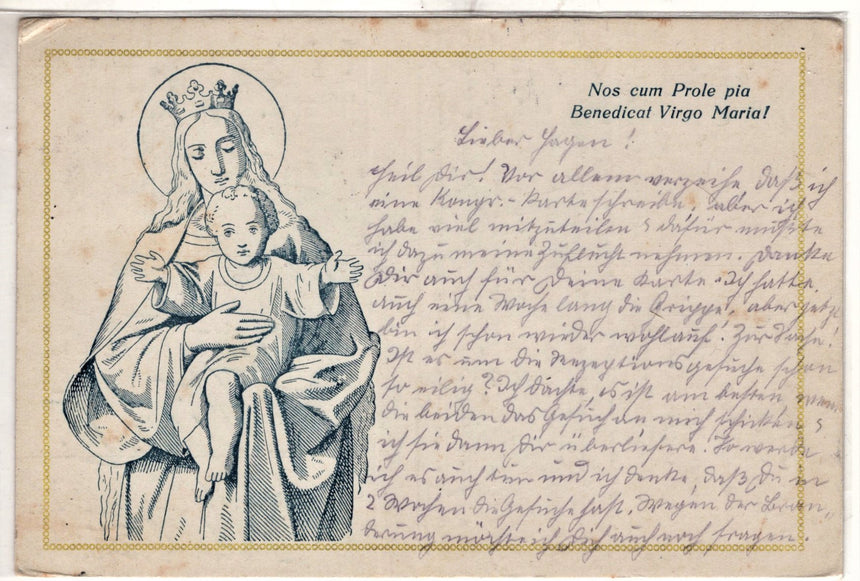 Nos cum Prole pia
Benedicat Virgo Maria!
Lieber Hagen!
Heil Dir! Vor allem verzeihe, daß ich
eine Kongr.-Karte schreibe, aber ich
habe viel mitzuteilen & dafür mußte
ich dazu meine Zuflucht nehmen. Danke
Dir auch für Deine Karte. Ich hatte
auch eine Woche lang die Grippe, aber jetzt
bin ich schon wieder wohlauf! Zur Sache!
Ist es um die Rezeptionsgesuche schon
so eilig? Ich dachte, es ist am besten wenn
die beiden das Gesuch an mich schicken &
ich sie dann Dir überliefere. So werde
ich es auch tun und ich denke, daß Du in
2 Wochen die Gesuche hast. Wegen der
möchte ich Dich auch noch fragen.